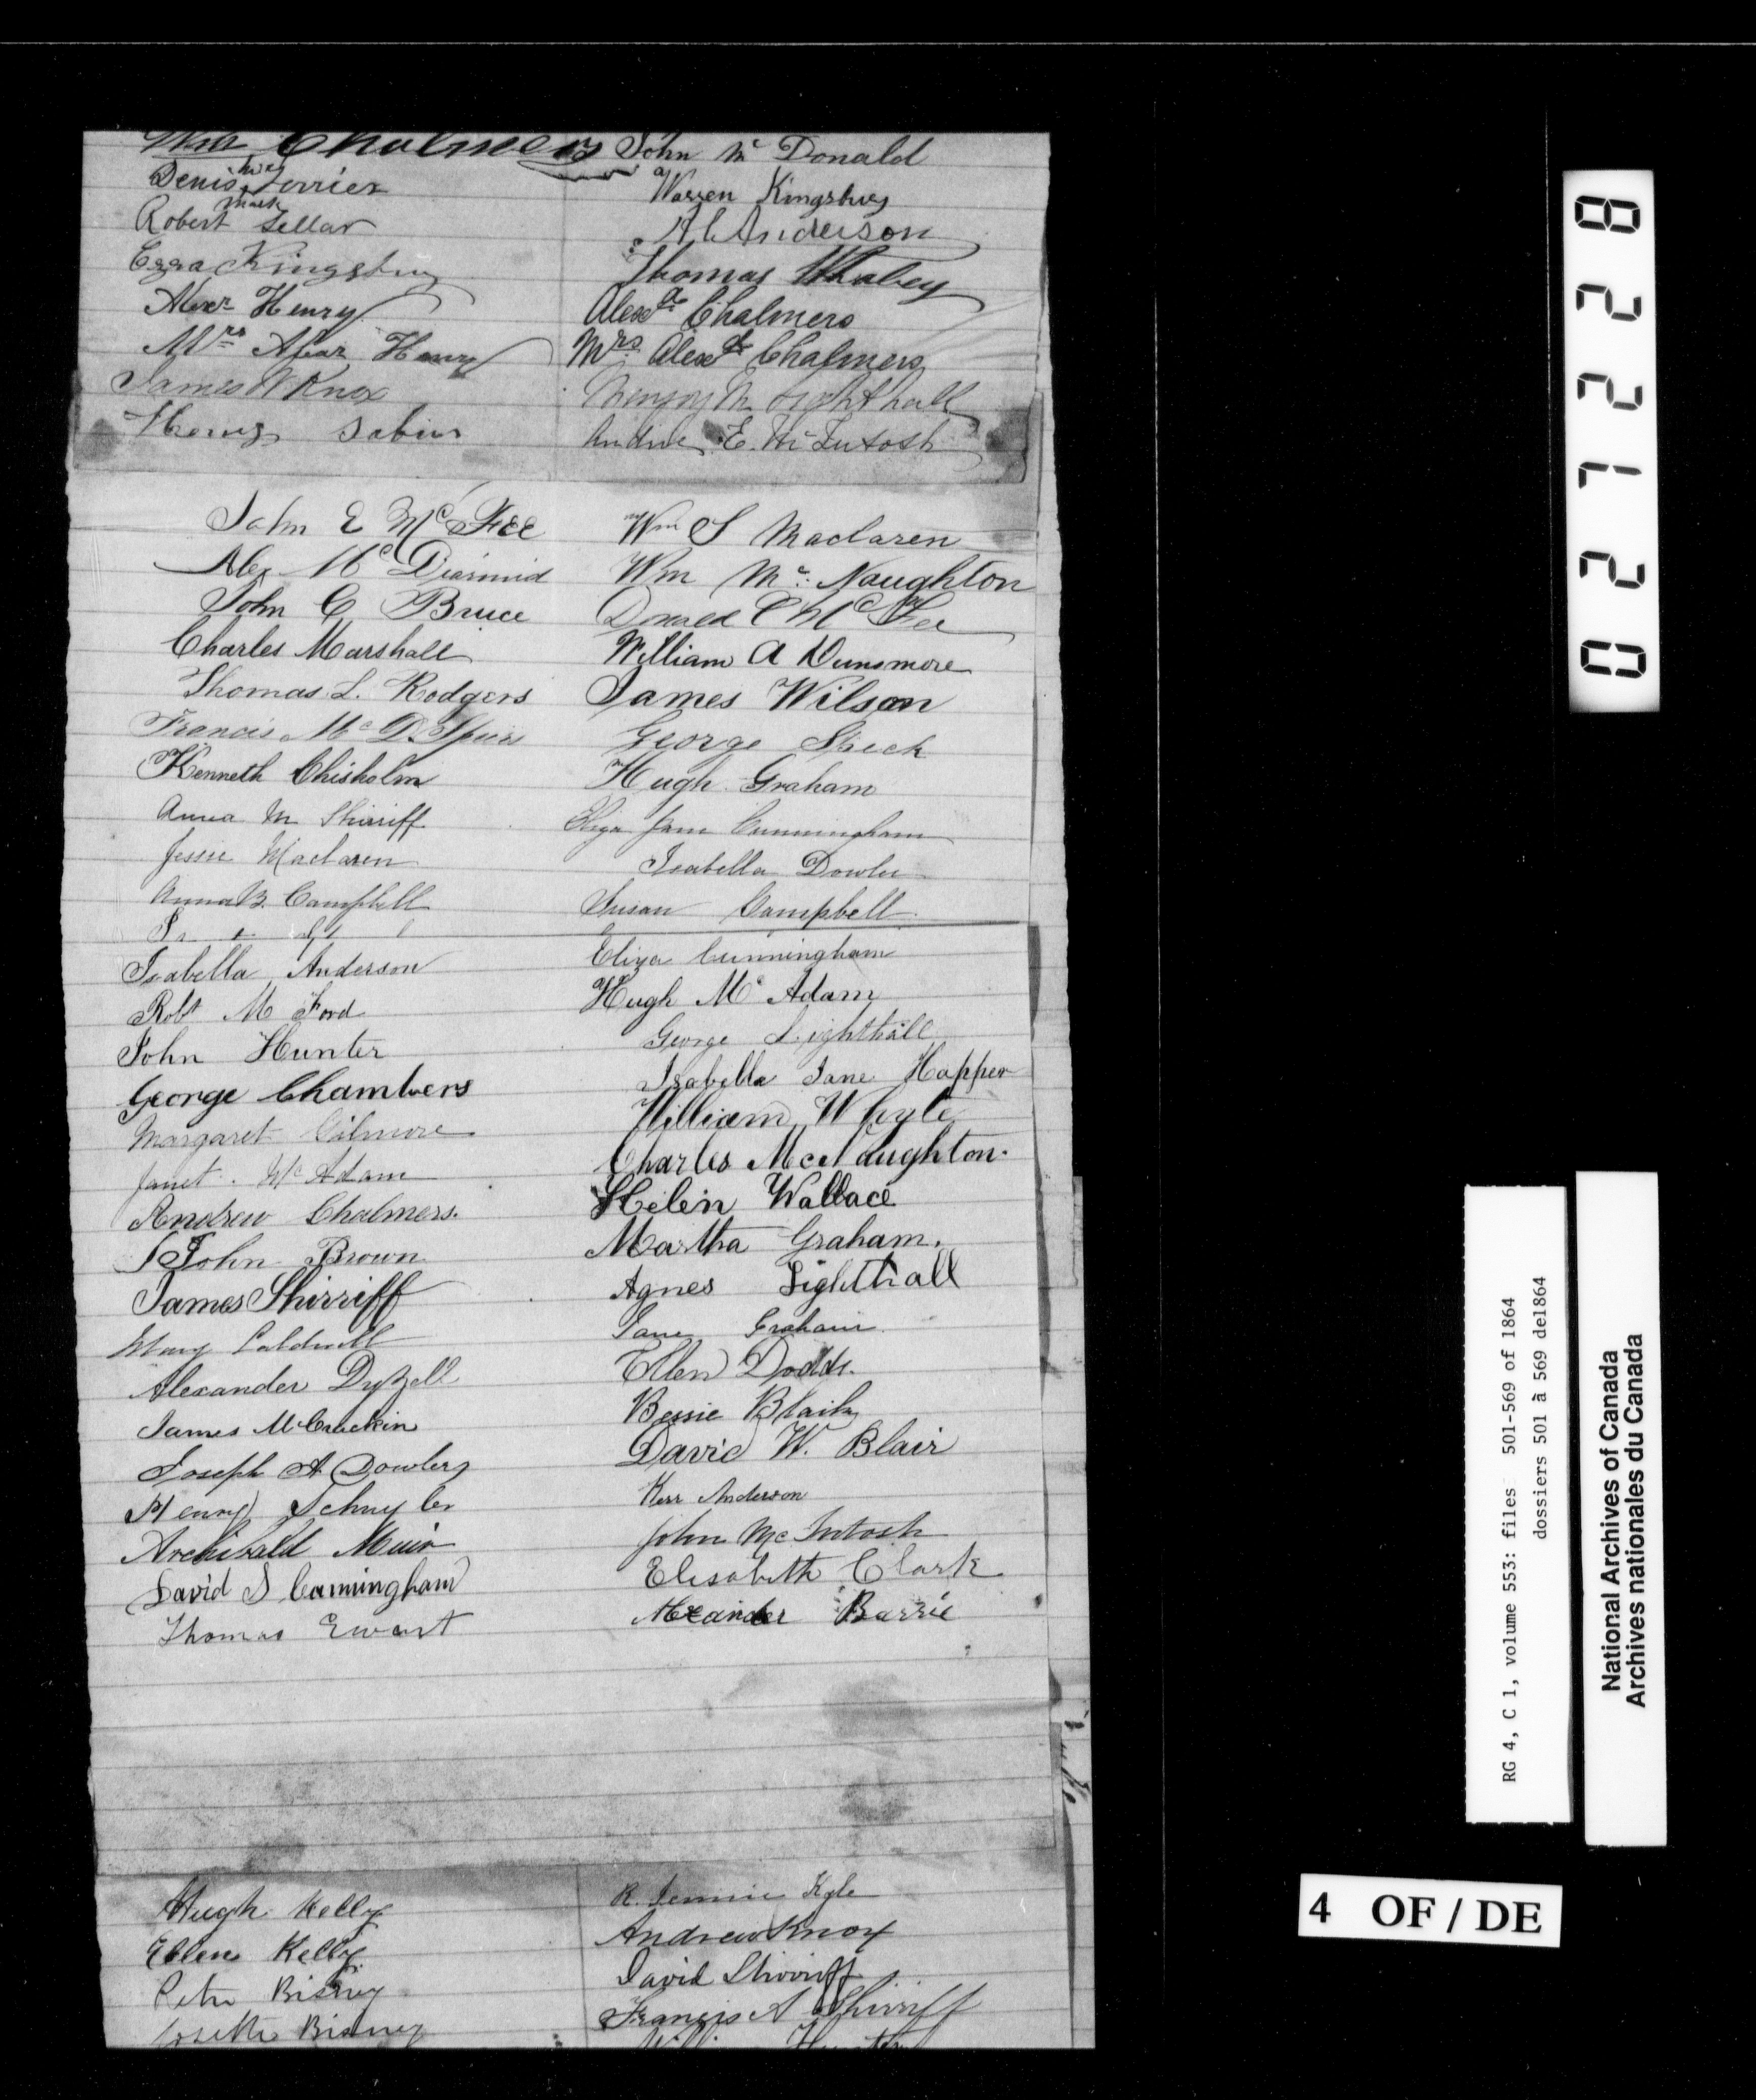 Chalmers
Denis his Terrier
mark
Robert Sellar
Ezra Kingsbury
Alexr Henry
Mrs Henry
James W Knox
Sabin
John Mc Donald
Warren Kingsbury
A C Anderson
Thomas Whaley
Alexdr Chalmers
Mrs Alexdr Chalmers
Lighthall
Andrew E. McIntosh
John E McFee
Alex McDiarmid
John C Bruce
Charles Marshall
Thomas L. Rodgers
Francis McD. Speirs
Kenneth Chisholm
Anna M Shirriff
Jessie Maclaren
Anna B. Campbell
Isabella Anderson
Robt M Ford
John Hunter
George Chambers
Margaret Gilmore
Janet McAdam
Andrew Chalmers.
John Brown
James Shirriff
Mary Caldwell
Alexander Dyzell
James McCrackin
Joseph A Dowler
Henry Schuyler
Archibald Muir
David S Cunningham
Thomas Ewart
Wm S Maclaren
Wm Mc Naughton
Donald C McFee
William A Dunsmore
James Wilson
George
Hugh Graham
Eliza Jane Cunningham
Isabella Dowler
Susan Campbell
Eliza Cunningham
Hugh McAdam
George Lighthall
Isabella Jane Hopper
William Whyte
Charles McNaughton.
Helen Wallace
Martha Graham.
Agnes Lighthall
Jane Graham
Ellen Dodds.
Bessie Blaik
David W. Blair
Kerr Anderson
John McIntosh
Elisabeth Clark
Alexander Barrie
Hugh Kelly
Ellen Kelly
Peter Bisney
Josette Bisney
R. Jennie Kyle
Andrew Knox
David Shirriff
Francis A Shirriff
02728
RG 4, C 1, volume 553: files 501-569 of 1864
dossiers 501 à 569 de1864
National Archives of Canada
Archives nationales du Canada
4 OF / DE